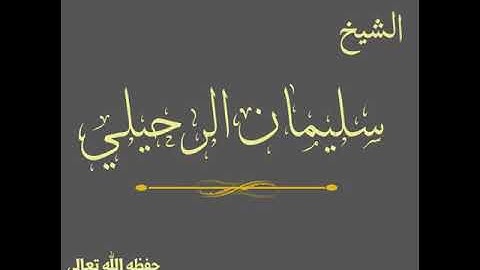 الشيخ
سليمان الرحيلي
حفظه الله تعالى